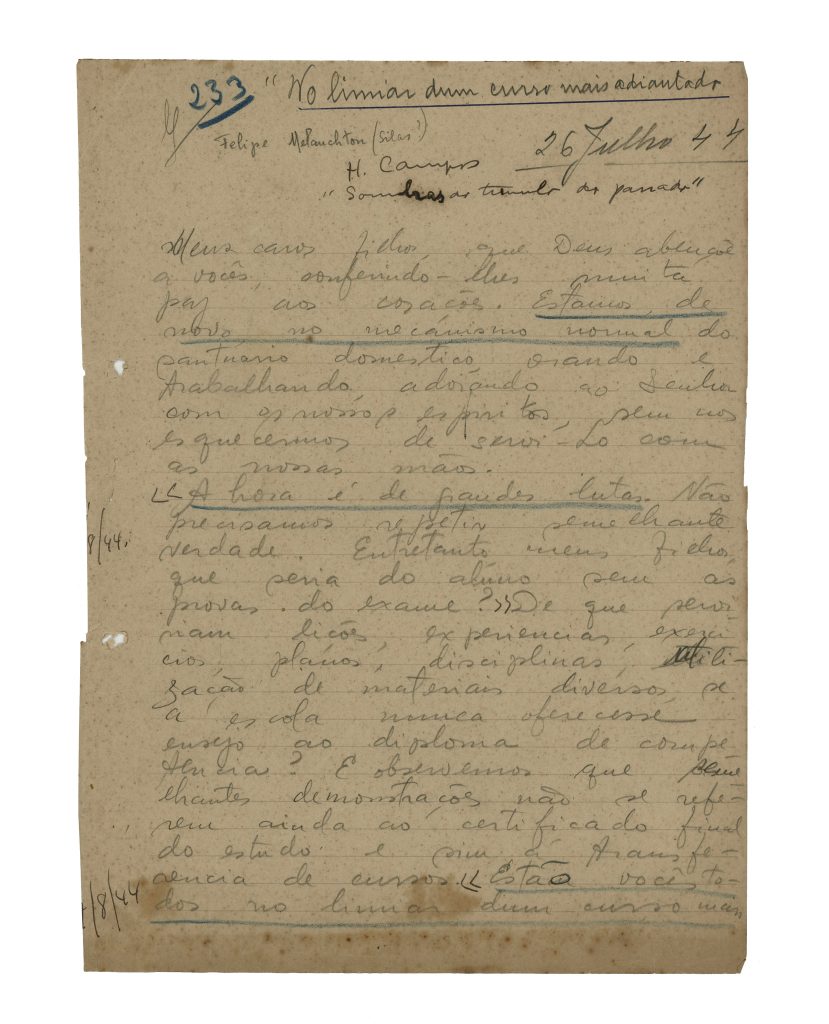 233 " No limiar dum curso mais adiantado
Felipe Melanchton (Silas?)
26 Julho 44
H. Campos
" Sombras do tumulo do passado"
Meus caros filhos, que Deus abençôe
a vocês, conferindo-lhes muita
paz aos corações. Estamos, de
novo no mecánismo normal do
santuário domestico, orando e
trabalhando, adorando ao Senhor
com os nossos espiritos, sem nos
esquecermos de servi-Lo com
as nossas mãos.
<< A hora é de grandes lutas. Não
precisamos repetir semelhante
8/44.
verdade. Entretanto meus filhos,
que seria do aluno sem as
provas do exame? >> De que servi-
riam lições, experiencias, exerci-
cios, planos, disciplinas, utili-
zação de materiais diversos, se
a escola nunca oferecesse
ensejo ao diploma de compe-
tencia? E observemos que seme
lhantes demonstrações não se refe-
rem ainda ao certificado final
do estudo e sim á transfe-
rencia de cursos. << Estão vocês to-
/8/44
dos no limiar dum curso mais